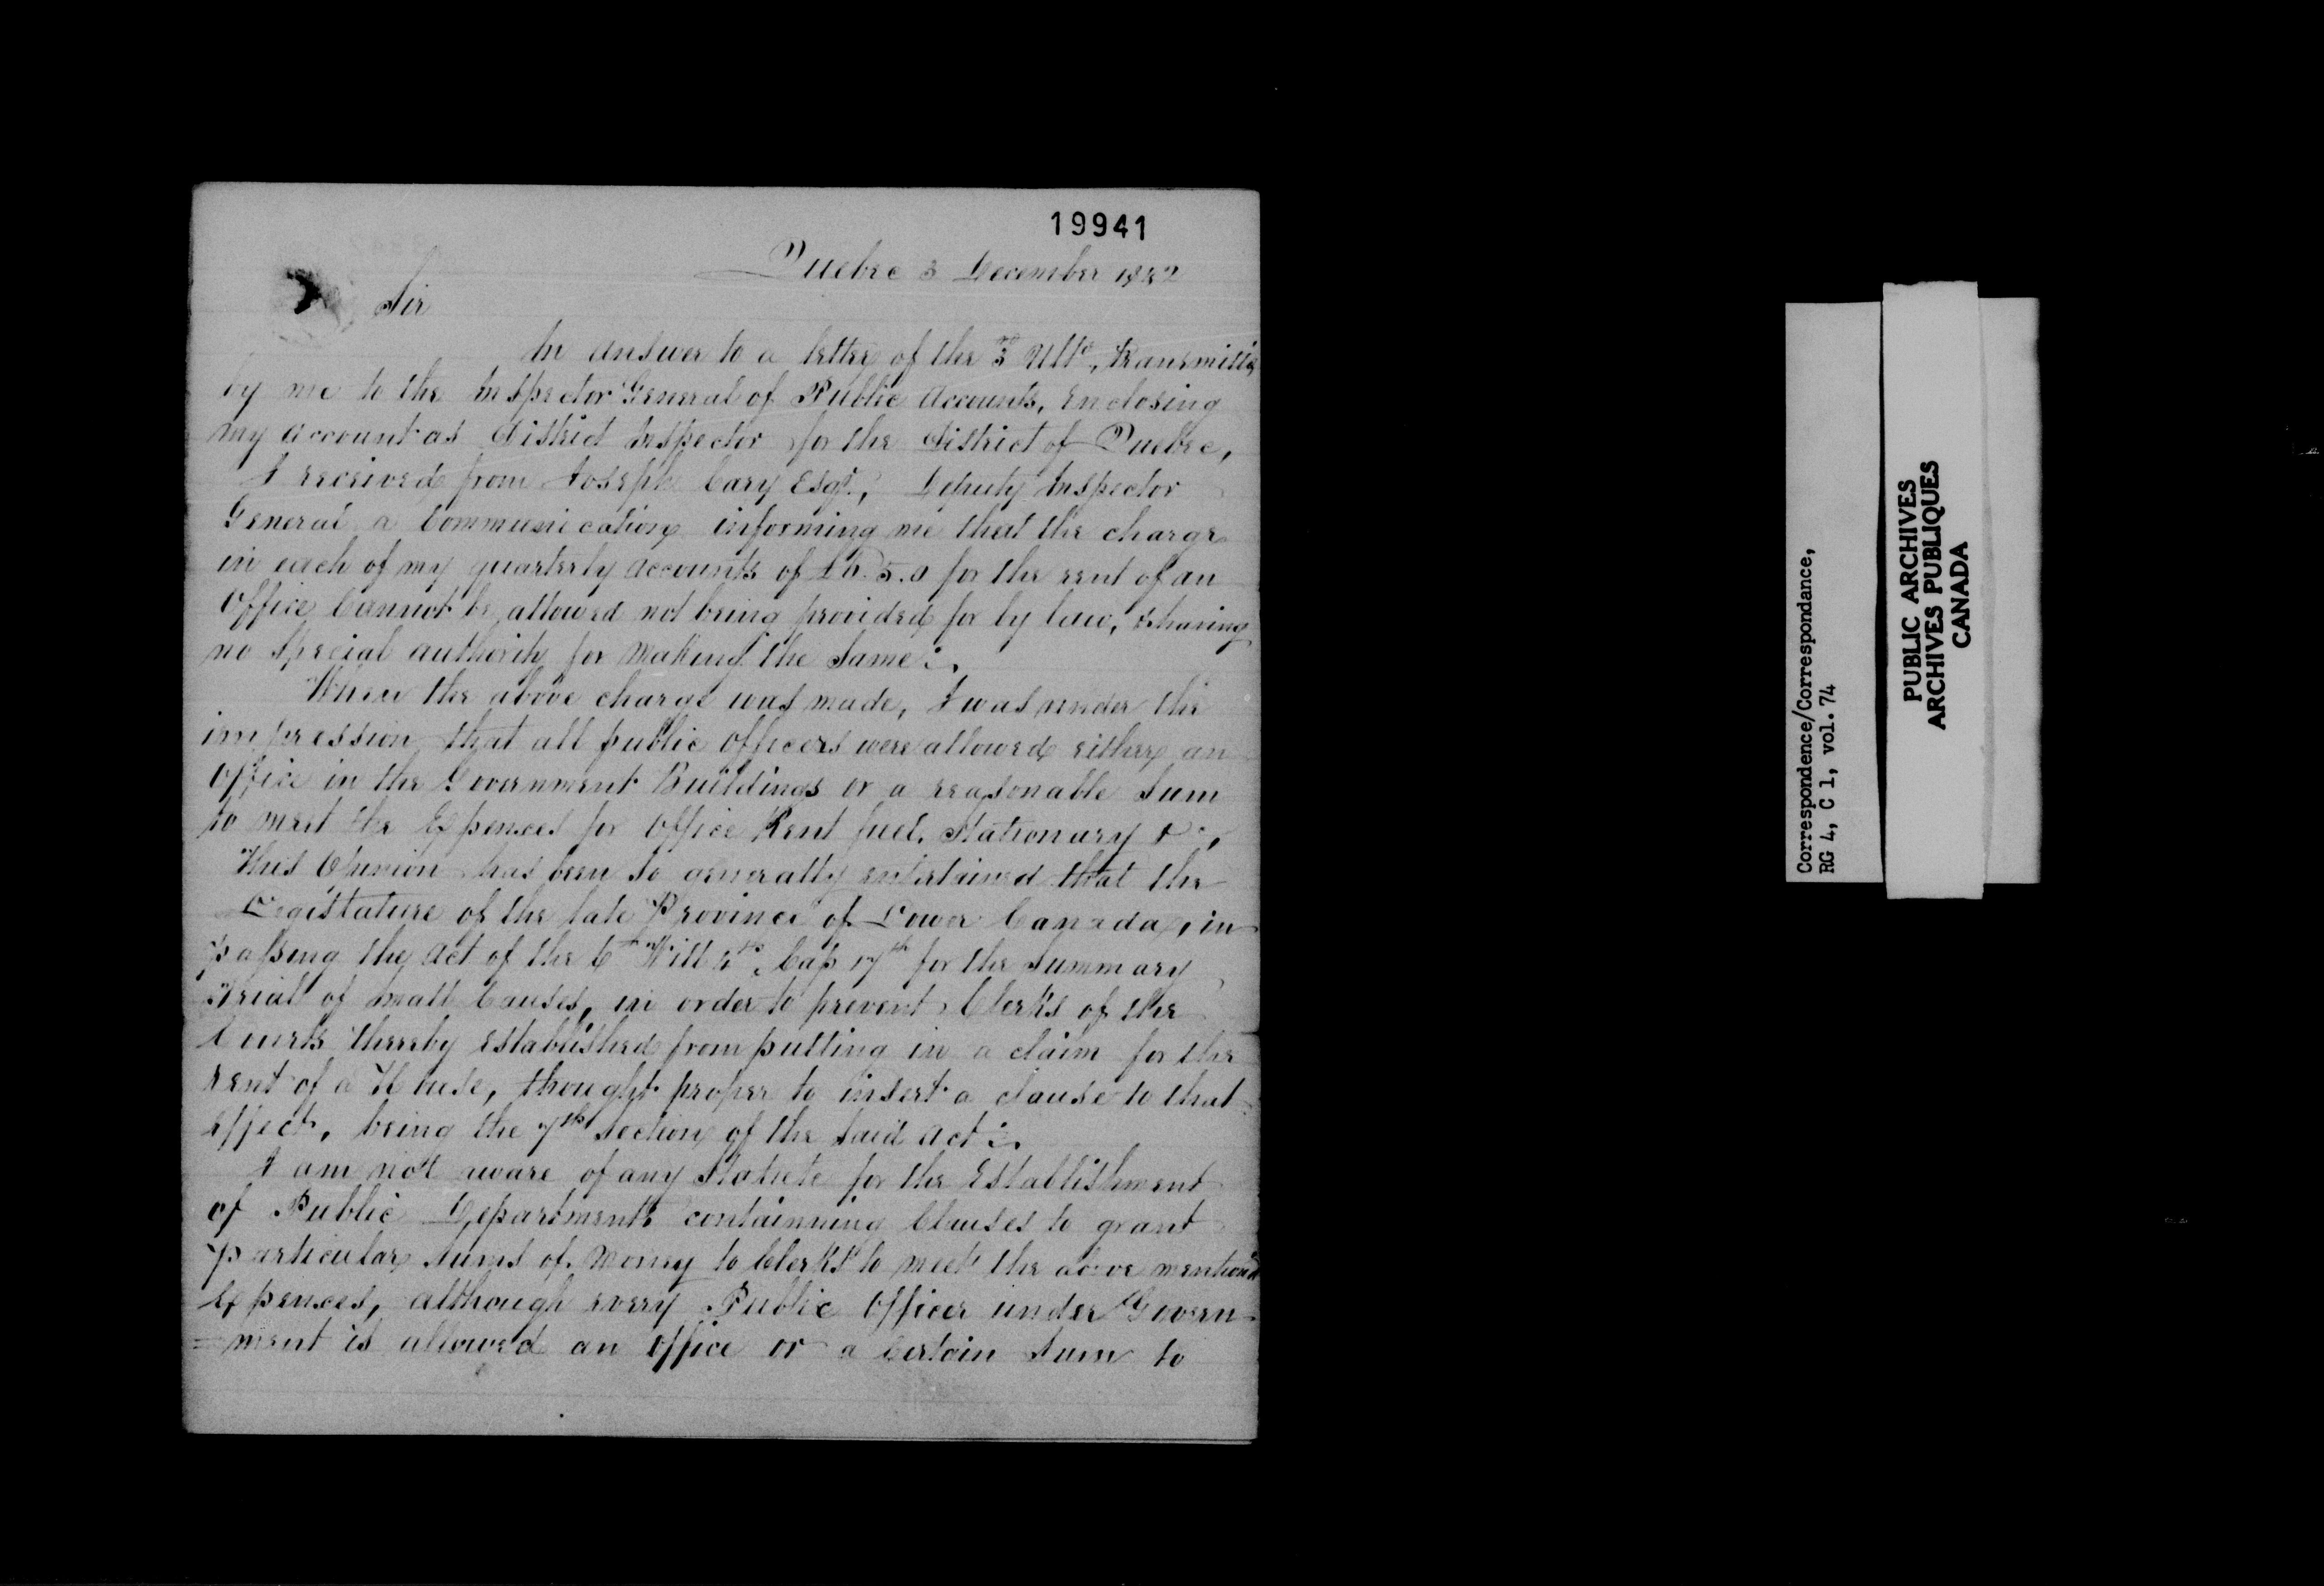 19941
Quebec 3 December 1842
Sir
In answer to a letter of the 3rd Ulto, transmitted
by me to the Inspector General of Public Accounts, Enclosing
my account as District Inspector for the District of Quebec,
I received from Joseph Cary Esqr., Deputy Inspector
General a Communication informing me that the charge
in each of my quarterly accounts of £6.5.0 for the rent of an
Office Cannot be allowed not being provided for by law, & having
no Special authority for making the Same.
When the above charge was made, I was under the
impression that all public Officers were allowed either an
Office in the Government Buildings or a reasonable Sum
to meet the Expences for Office Rent fuel, Stationary &c,
This Opinion has been so generally entertained that the
Legislature of the late Province of Lower Canada, in
passing the Act of the 6th Will 4th, Cap 17th for the Summary
Trial of Small Causes, in order to prevent Clerks of the
Courts thereby Established from putting in a claim for the
rent of a House, thought proper to insert a clause to that
effect, being the 7th Section of the said Act.
I am not aware of any Statute for the Establishment
of Public Departments containning Clauses to grant
particular Sums of Money to Clerks to meet the above mention'd
Expences, although every Public Officer under Govern-
=ment is allowed an Office or a Certain Sum to
Correspondence/Correspondance,
RG 4, C 1, vol. 74
PUBLIC ARCHIVES
ARCHIVES PUBLIQUES
CANADA